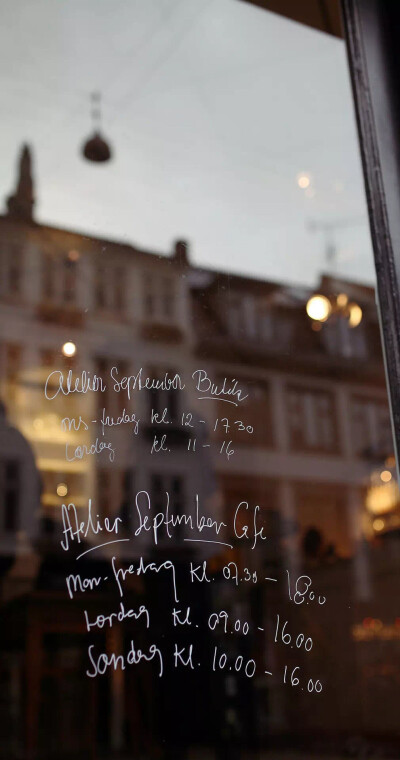 Atelier September Butik
ons-fredag kl. 12 - 17 30
Lørdag kl. 11 - 16
Atelier September Cafe
Man-fredag kl. 07.30 - 18.00
Lørdag kl. 09.00 - 16.00
Søndag kl. 10.00 - 16.00